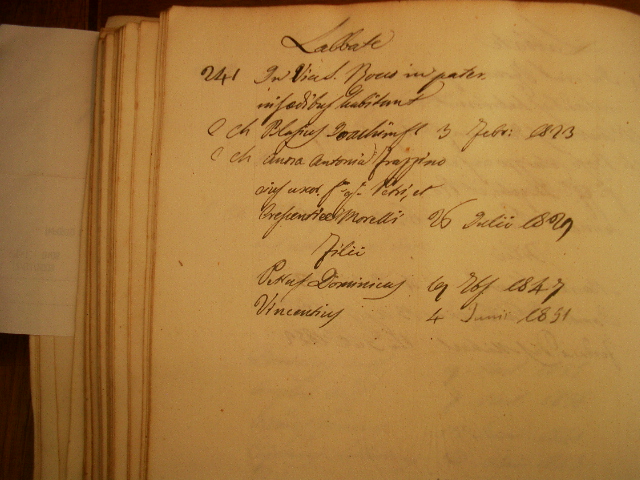 Labbate
241 In Vico S. Rocci in pater.
inf ædibus habitant
C Ch Blasius Joachim 3 Febr: 1823
C Ch Anna Antonia Frazzino
ejus uxor f. q. Petri, et
Crescentiæ Morelli 26 Julii 1829
Filii
Petrus Dominicus 1847
Vincentius 4 Junii 1851